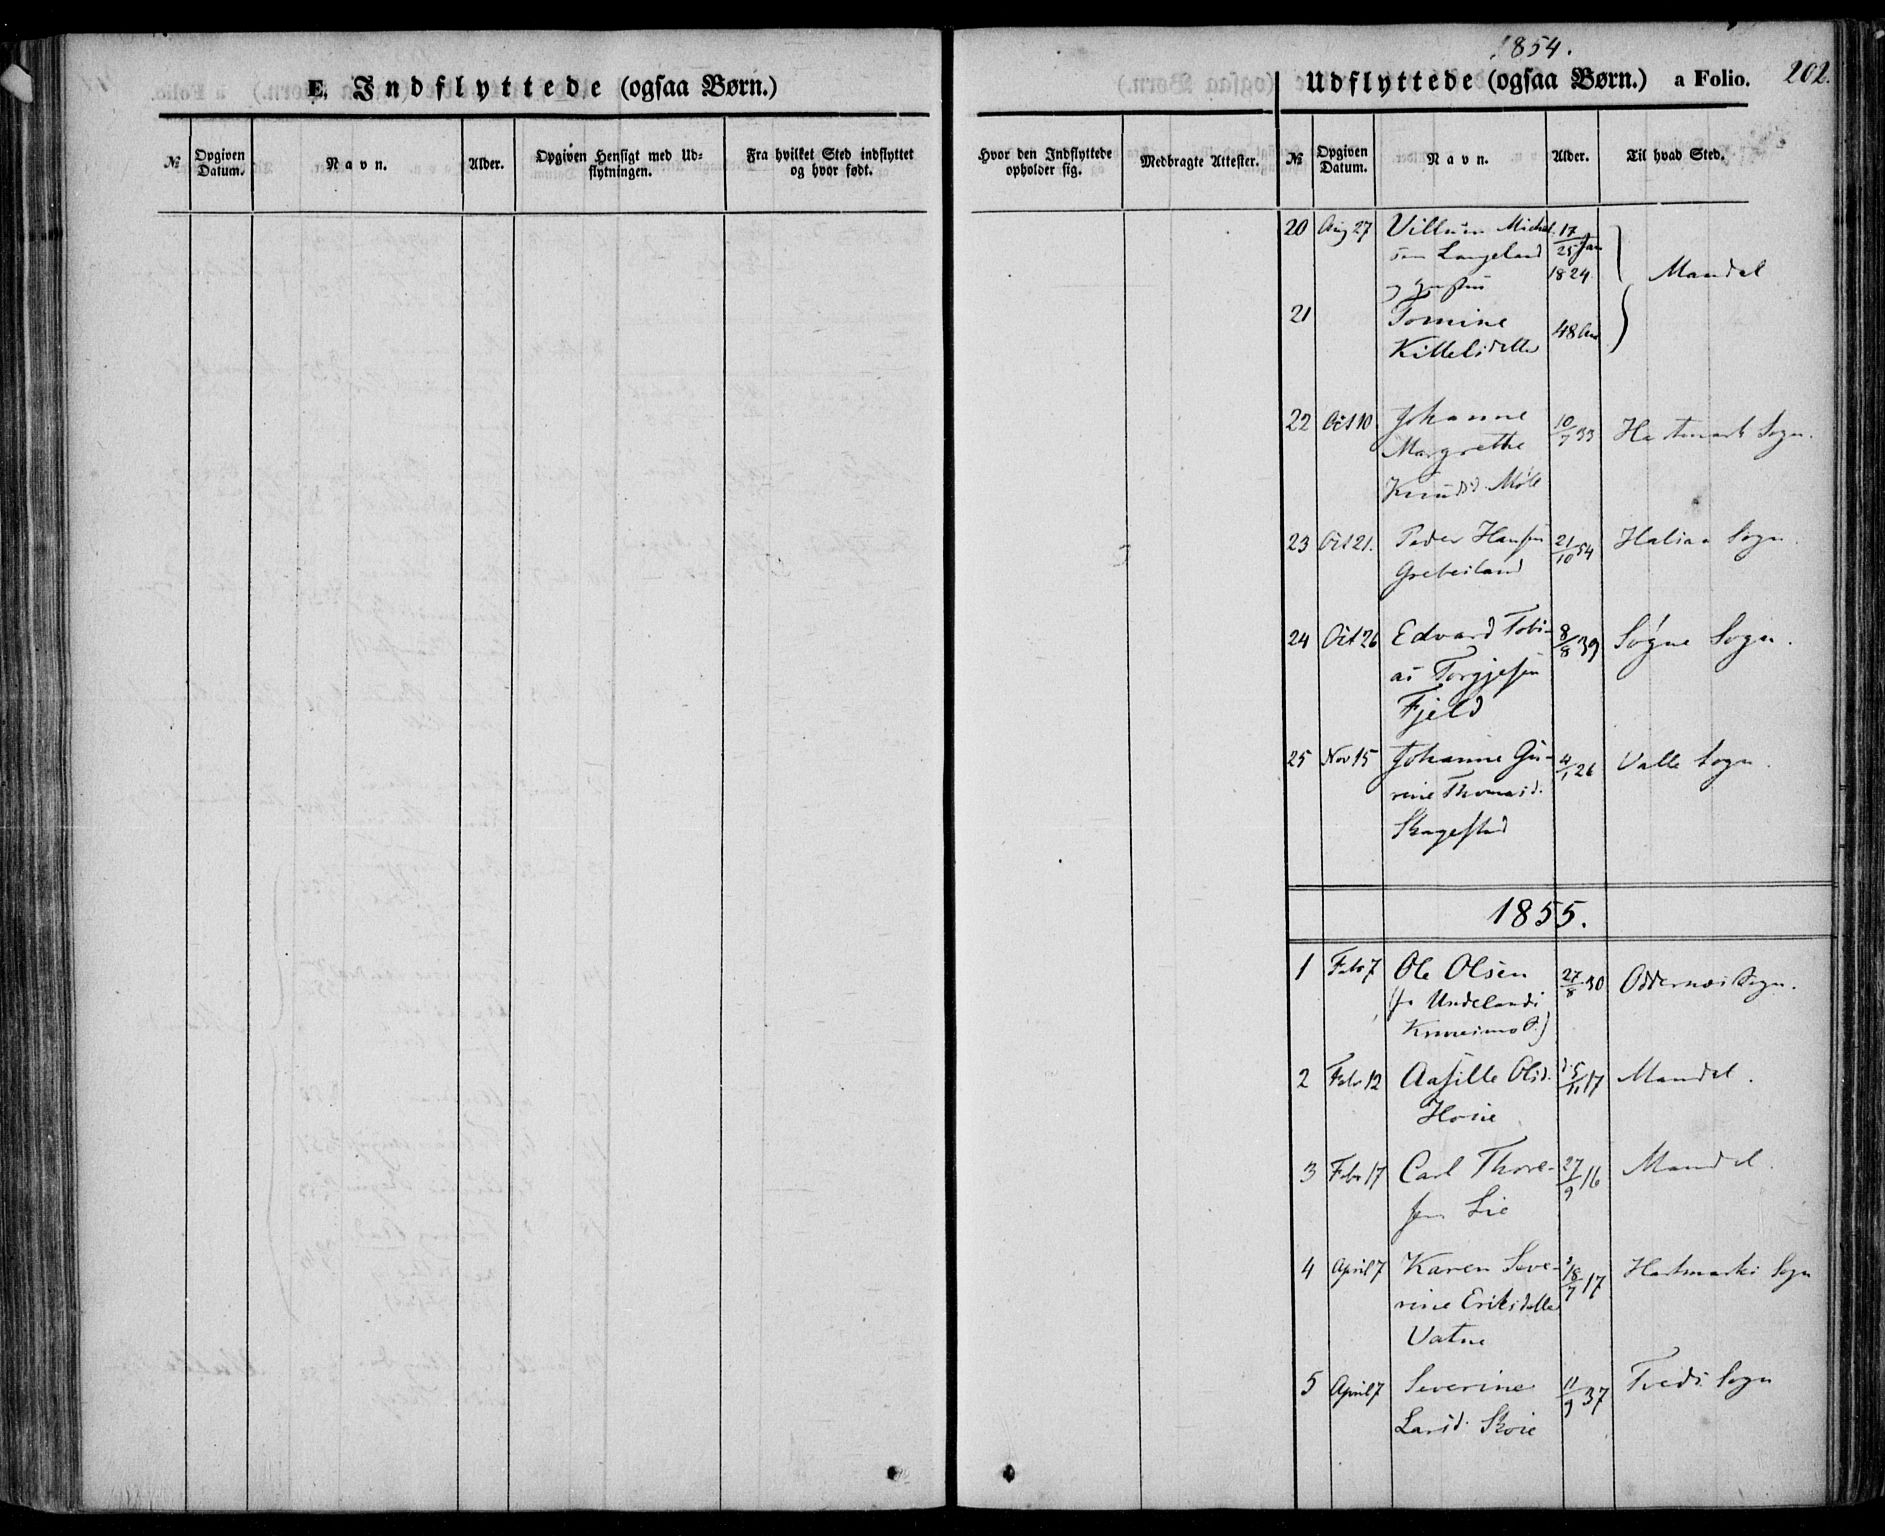 E. Indflyttede (ogsaa Børn.)
№
Opgiven Datum.
Navn.
Alder.
Opgiven Hensigt med Ud=
flytningen.
Fra hvilket Sted indflyttet
og hvor født.
Hvor den Indflyttede
opholder sig.
Medbragte Attester.
1854.
Udflyttede (ogsaa Børn.) a Folio. 202.
№
Opgiven Datum.
Navn.
Alder.
Til hvad Sted.
20 Aug 27 Villum Michel 17
sen Langeland 25 Jan
1824. Mandal
21 Tomine
Kittelsdatter 48 Aar
22 Oct 10 Johanne 10/7 33 Hartmark Sogn.
Margrethe
Knudsd. Møle
23 Oct 21. Peder Hansen 21/10 54 Halsaa Sogn.
Greibesland
24 Oct 26 Edvard Tobi- 8/8 39 Søgne Sogn.
as Torgjesen
Fjeld
25 Nov 15 Johanne Gu- 4/1 26 Valle Sogn.
rine Thomasd.
Skagestad
1855.
1 Febr 7 Ole Olsen 27/8 30 Oddernæs Sogn.
(fr Undelands
2 Febr 12 Aasille Olsd. 17 Mandal.
Hoie
3 Febr 17 Carl Thore- 27/9 16 Mandal.
sen Lie
4 April 7 Karen Seve- 18/7 17 Hartmarks Sogn
rine Eriksdatter
Vatne
5 April 7 Severine 11/9 37 Tveds Sogn
Larsd. Skoie